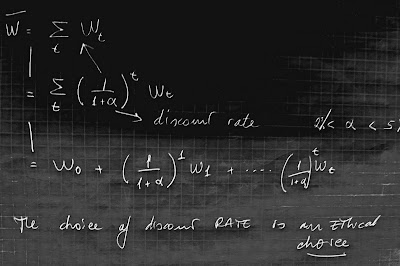 W̅ = Σ_t W_t
= Σ_t (1/(1+α))^t W_t
discount rate 2% < α < 5%
= W_0 + (1/(1+α))^1 W_1 + .... (1/(1+α))^t W_t
The choice of discount RATE is an ETHICAL
choice